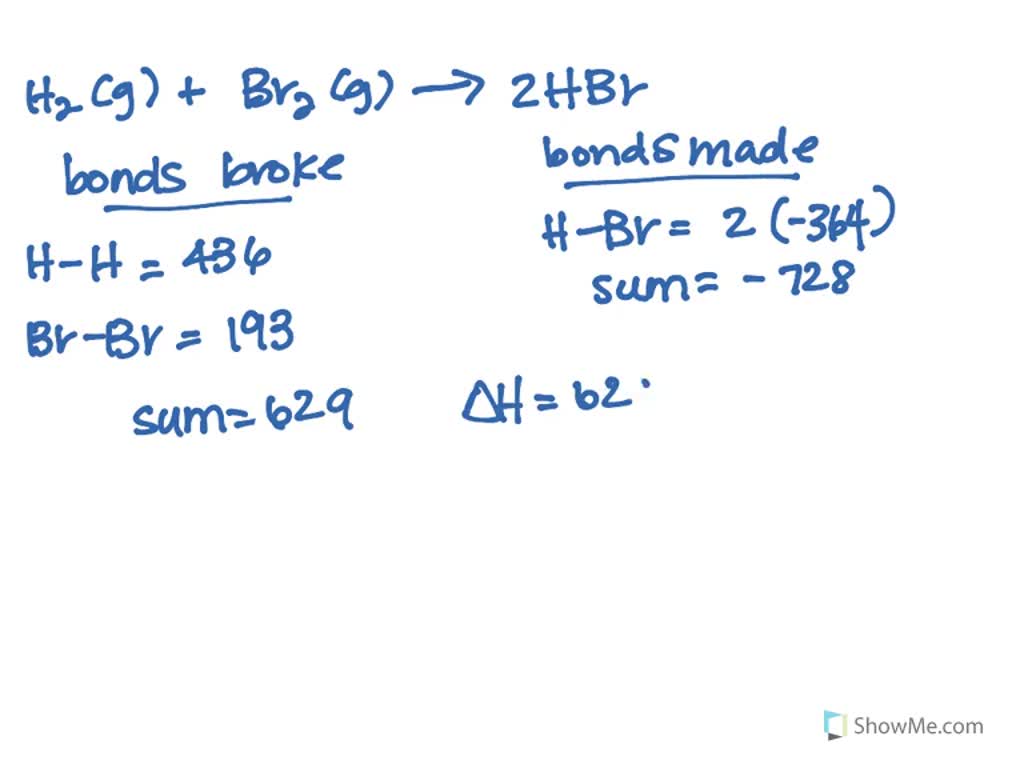 H₂(g) + Br₂(g) → 2HBr
bonds broke
H-H = 436
Br-Br = 193
sum = 629
bonds made
H-Br = 2(-364)
sum = -728
ΔH = 62
ShowMe.com